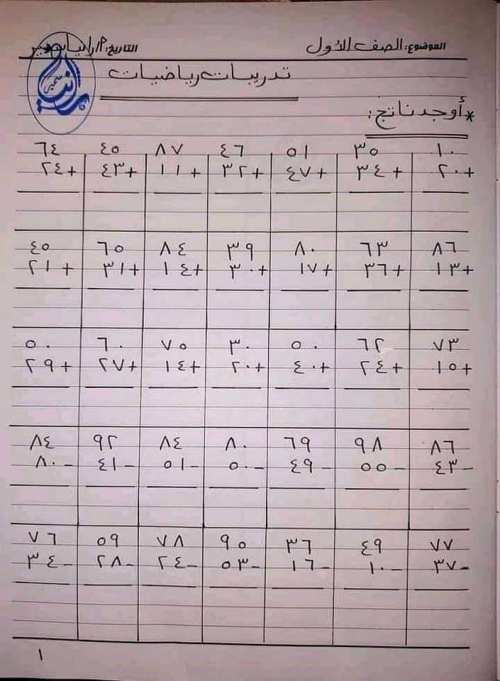 الموضوع: الصف الأول التاريخ: م/رانيا سمير
تدريبات رياضيات
* أوجد ناتج:
١٠ ٣٥ ٥١ ٤٦ ٨٧ ٤٥ ٦٤
٢٠+ ٣٤+ ٤٧+ ٣٢+ ١١+ ٤٣+ ٢٤+
٨٦ ٦٣ ٨٠ ٣٩ ٨٤ ٦٥ ٤٥
١٣+ ٣٦+ ١٧+ ٣٠+ ١٤+ ٣١+ ٢١+
٧٣ ٦٢ ٥٠ ٣٠ ٧٥ ٦٠ ٥٠
١٥+ ٢٤+ ٤٠+ ٢٠+ ١٤+ ٢٧+ ٢٩+
٨٦ ٩٨ ٦٩ ٨٠ ٨٤ ٩٢ ٨٤
٤٣- ٥٥- ٤٩- ٥٠- ٥١- ٤١- ٨٠-
٧٧ ٤٩ ٣٦ ٩٥ ٧٨ ٥٩ ٧٦
٣٧- ١٠- ١٦- ٥٣- ٢٤- ٢٨- ٣٤-
١